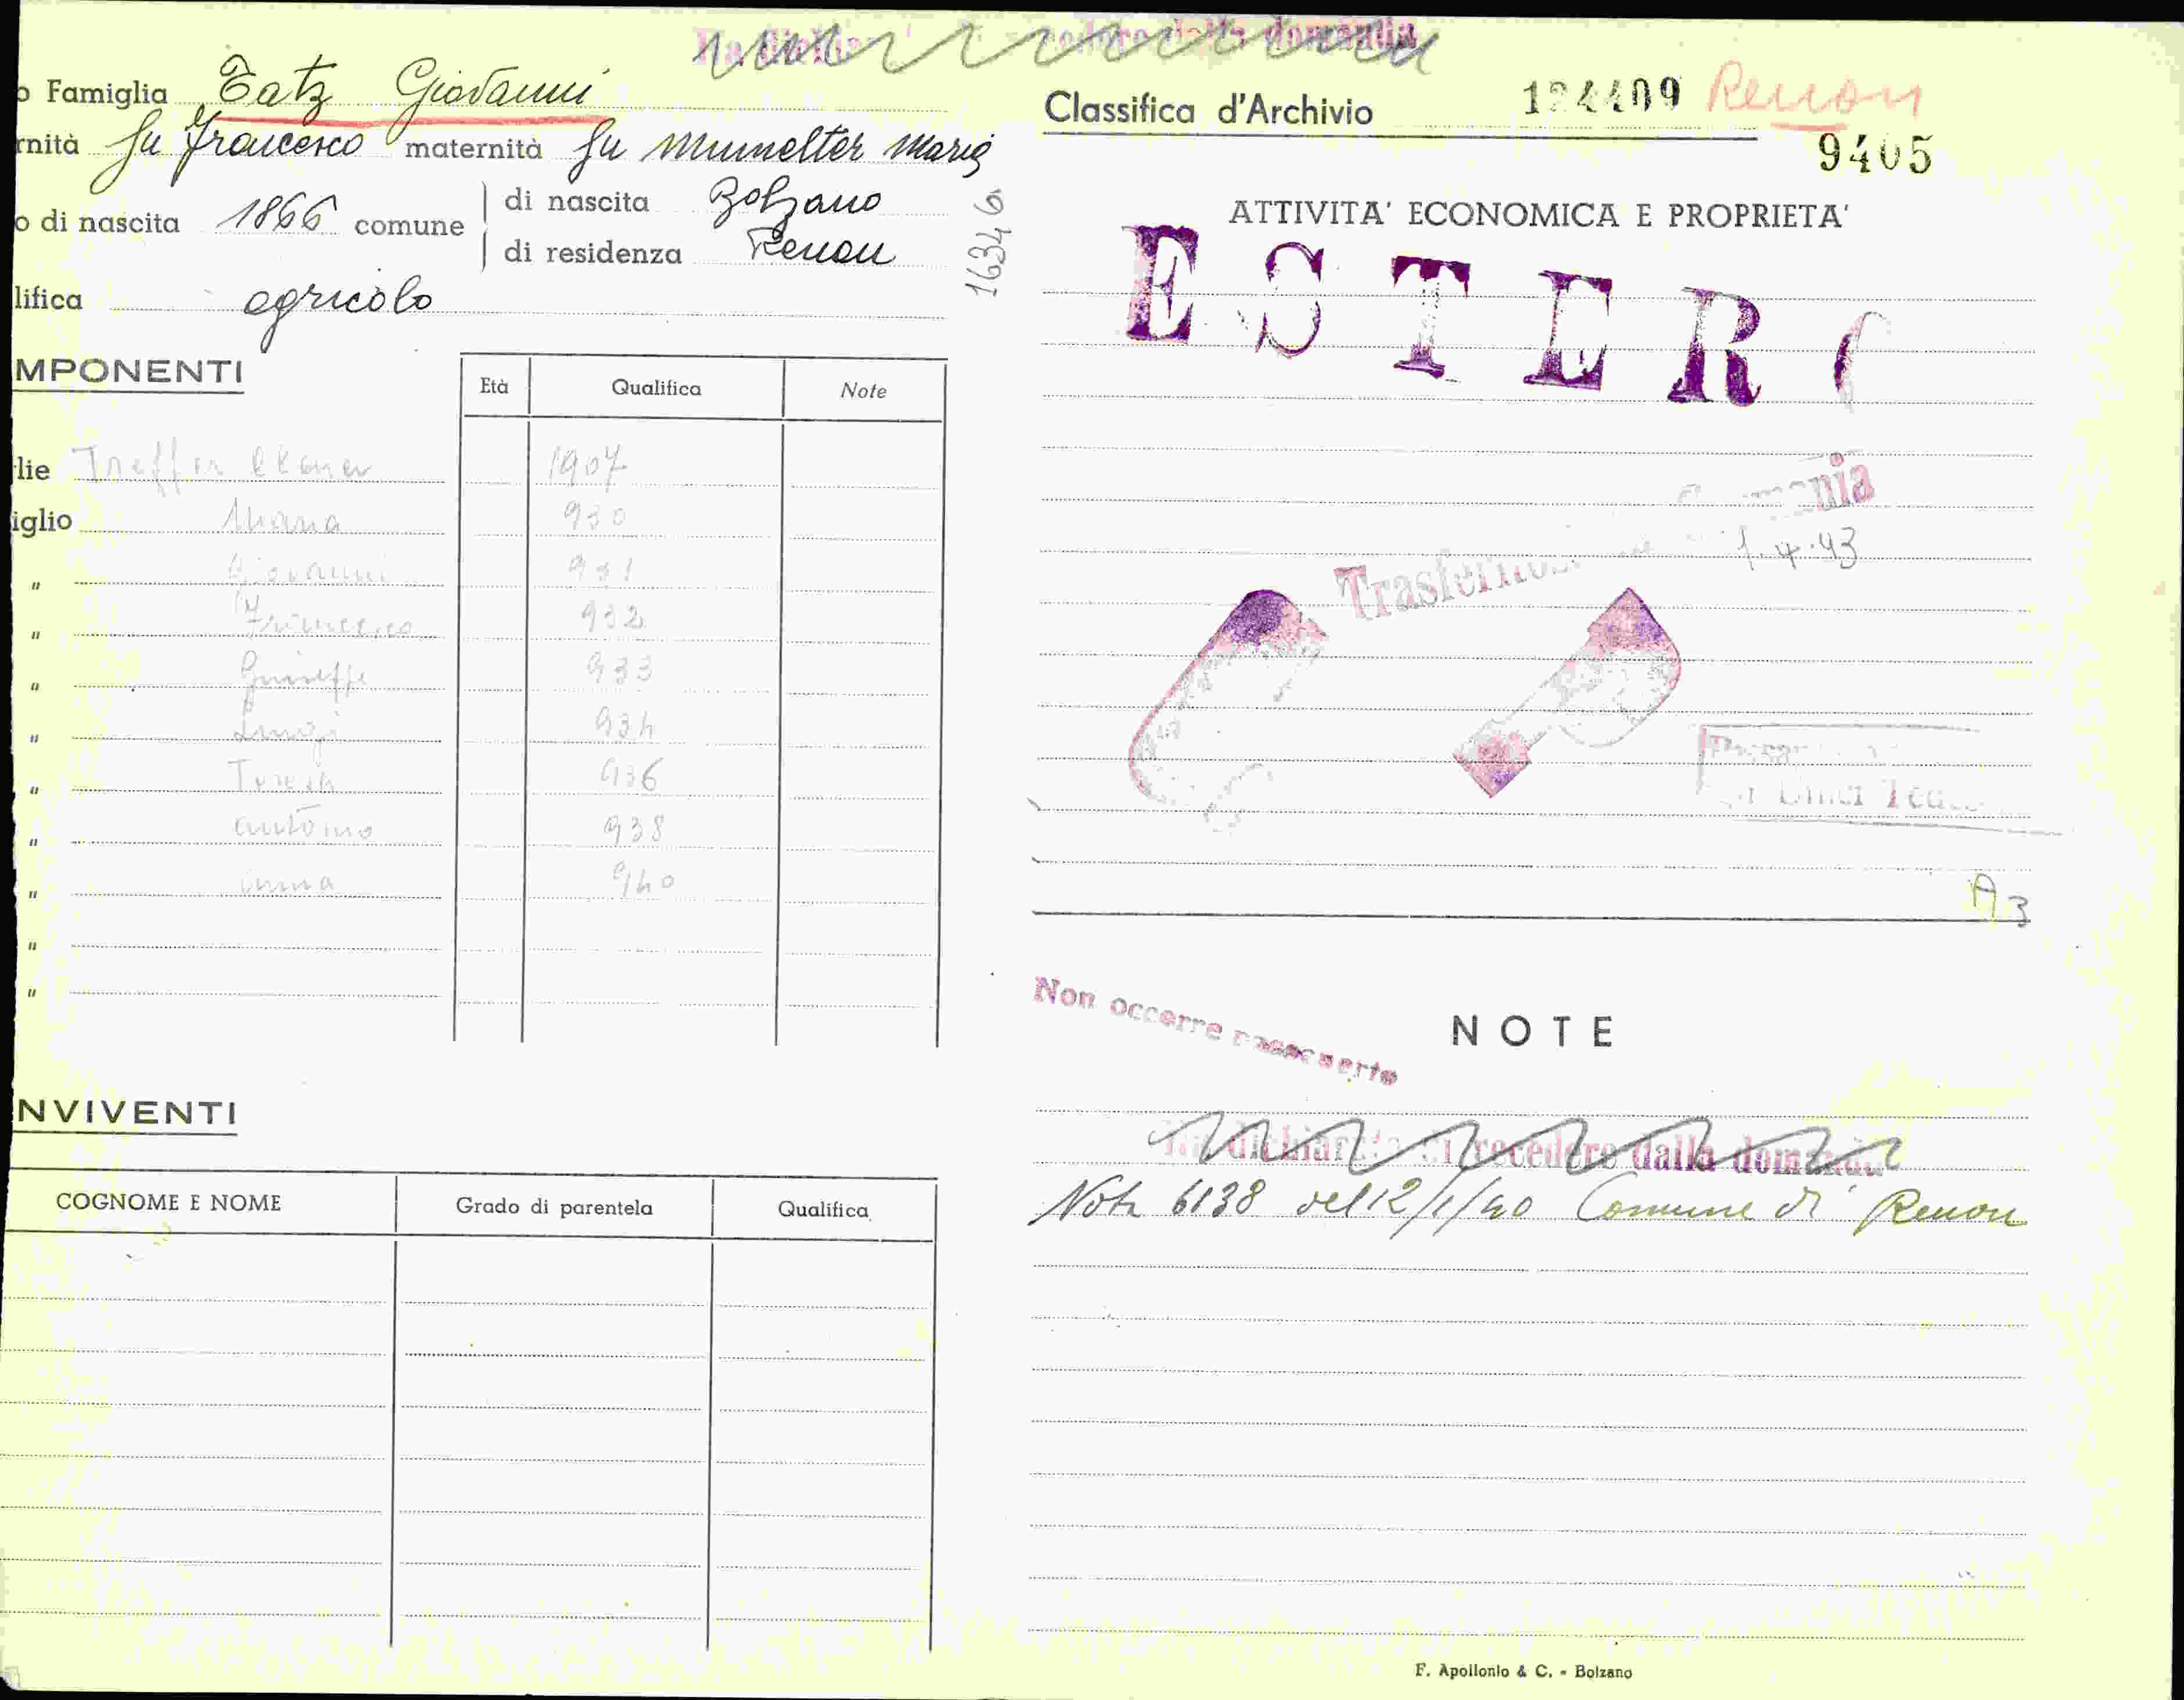 o Famiglia Tatz Giovanni
rnità fu Francesco maternità fu Mumelter Maria
o di nascita 1866 comune di nascita Bolzano
di residenza Renon
lifica agricolo
16346
MPONENTI
Età Qualifica Note
lie Treffer 1907
iglio Maria 930
" Giovanni 931
" Francesco 932
" Giuseppe 933
" Luigi 934
" 936
" Antonio 938
" Anna 940
"
"
NVIVENTI
COGNOME E NOME Grado di parentela Qualifica
dalla domanda
Classifica d'Archivio 124409 Renon
9405
ATTIVITA' ECONOMICA E PROPRIETA'
ESTERI
1.4.43
A3
Non occorre
NOTE
Ha dichiarato di recedere dalla domanda
Nota 6138 del 12/1/40 Comune di Renon
F. Apollonio & C. - Bolzano